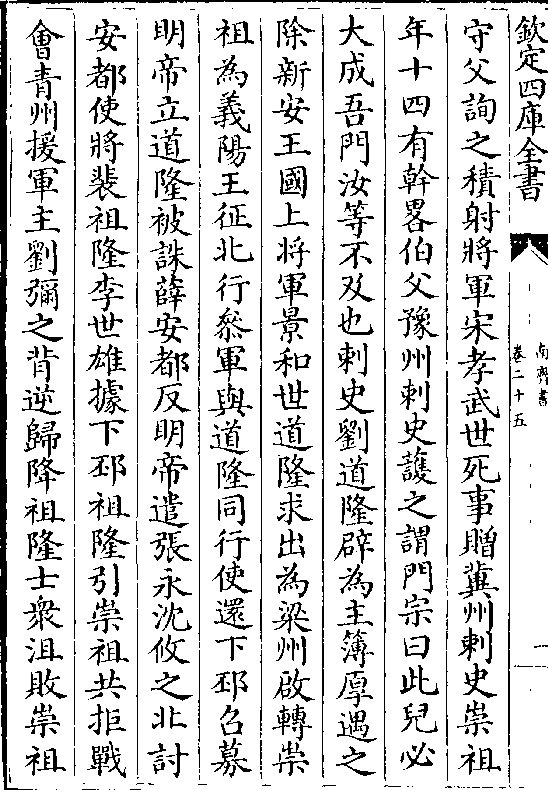 欽定四庫全書
南齊書
卷二十五
一
守父詢之積射將軍宋孝武世死事贈冀州刺史崇祖
年十四有幹畧伯父豫州刺史䕶之謂門宗曰此兒必
大成吾門汝等不及也刺史劉道隆辟為主簿厚遇之
除新安王國上將軍景和世道隆求出為梁州啟轉崇
祖為義陽王征北行叅軍與道隆同行使還下邳召募
明帝立道隆被誅薛安都反明帝遣張永沈攸之北討
安都使將裴祖隆李世雄據下邳祖隆引崇祖共拒戰
會青州援軍主劉彌之背逆歸降祖隆士衆沮敗崇祖